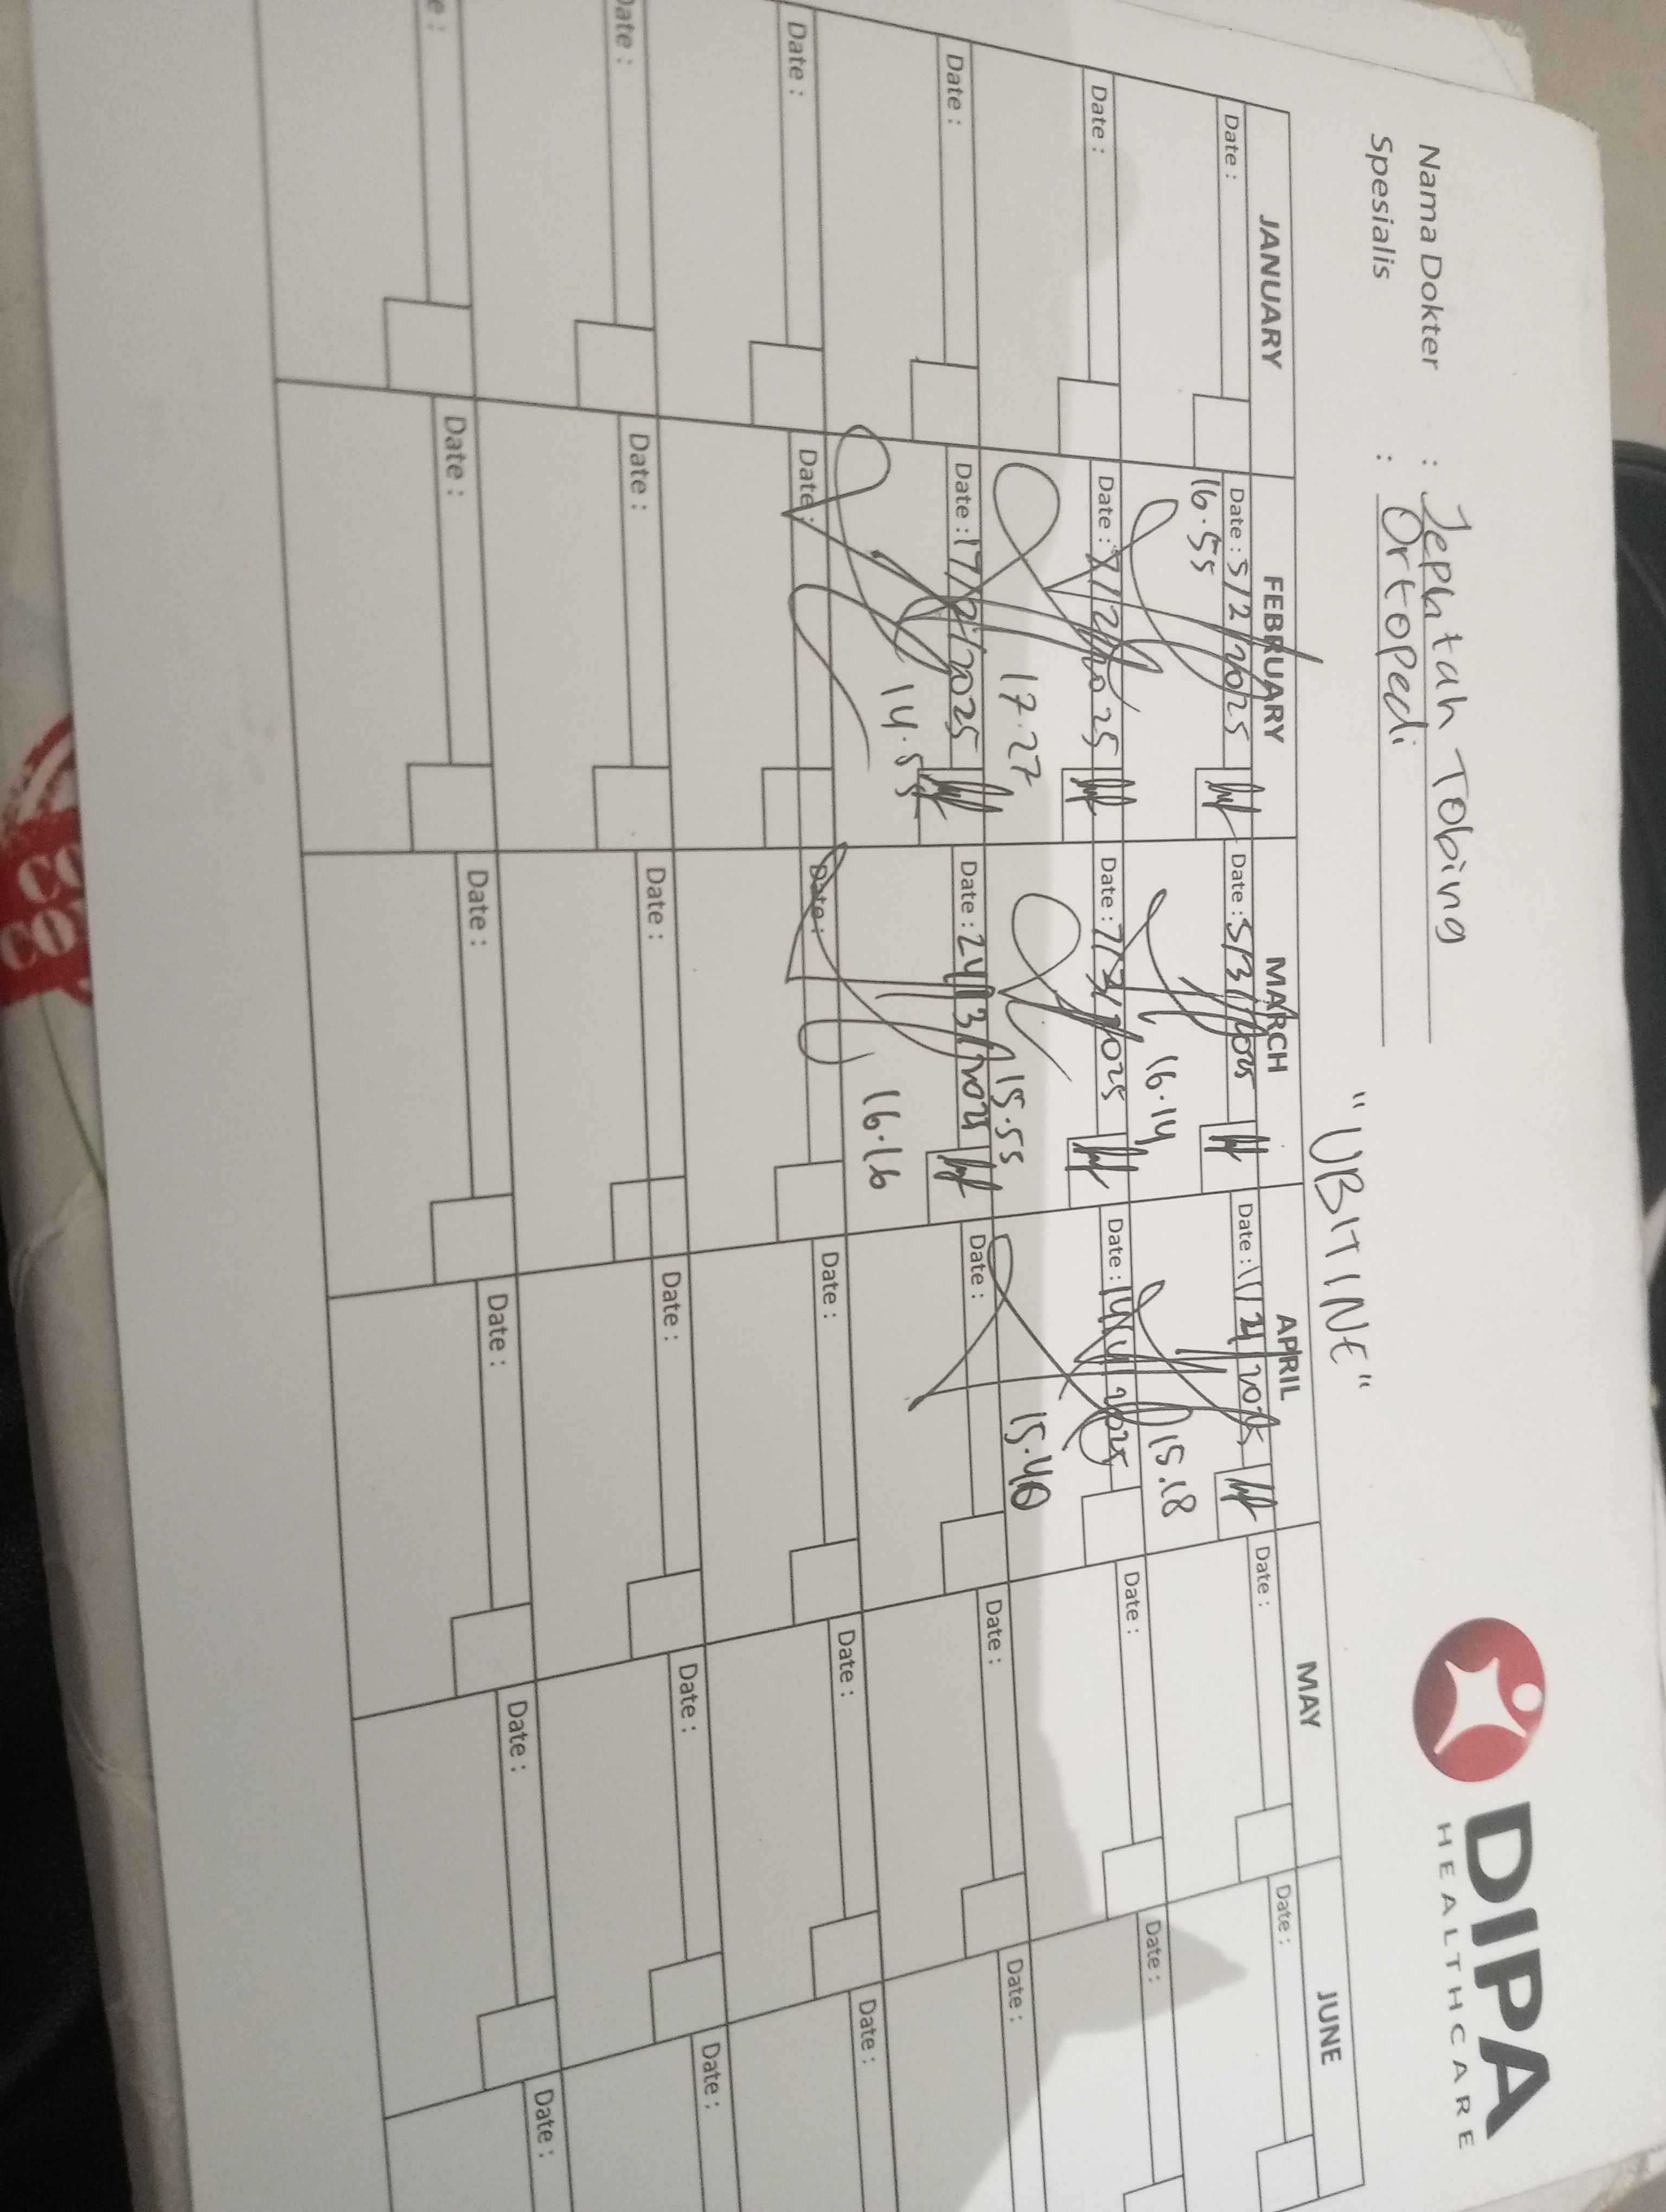 DIPA
HEALTHCARE
Nama Dokter : Jephtah Tobing
Spesialis : Ortopedi
"UBITINE"
JANUARY FEBRUARY MARCH APRIL MAY JUNE
Date : Date : 3/2/2025 Date : 5/3/2025 Date : 11/4/2025 Date : Date :
16.55 16.14 15.18
Date : Date : Date : 7/3/2025 Date : 14/4/2025 Date : Date :
17.27 15.55 15.40
Date : Date : 17/2/2025 Date : 24/3/2025 Date : Date : Date :
14.55 16.16
Date : Date : Date : Date : Date : Date :
Date : Date : Date : Date : Date : Date :
Date : Date : Date : Date : Date :
CO
CO